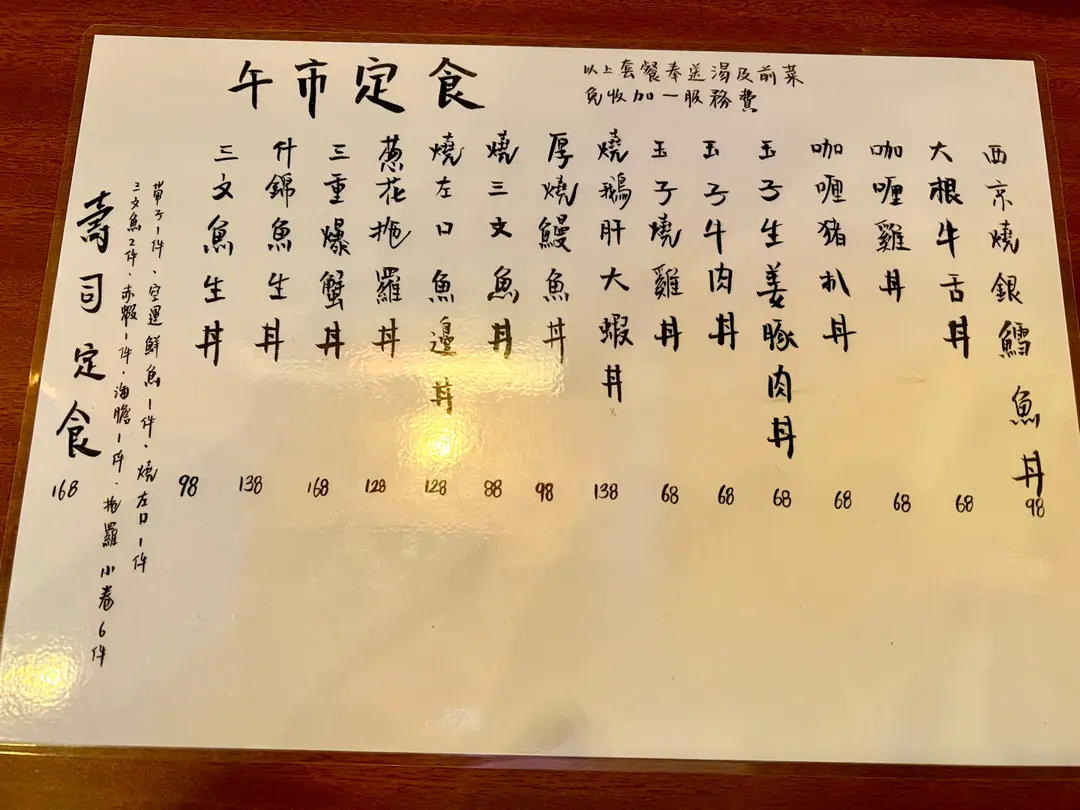 午市定食
以上套餐奉送湯及前菜
免收加一服務費
西京燒銀鱈魚丼 98
大根牛舌丼 68
咖喱雞丼 68
咖喱猪扒丼 68
玉子生姜豚肉丼 68
玉子牛肉丼 68
玉子燒雞丼 68
燒鵝肝大蝦丼 138
厚燒鰻魚丼 98
燒三文魚丼 88
燒左口魚邊丼 128
葱花拖羅丼 128
三重爆蟹丼 168
什錦魚生丼 138
三文魚生丼 98
壽司定食 168
帶子1件、空運鮮魚1件、燒左口1件
三文魚2件、赤蝦1件、海膽1件、拖羅小卷6件